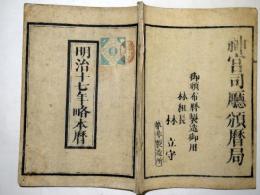 神官司廳頒暦局
御頒布暦製造御用
林組長
林 立守
明治十七年略本暦